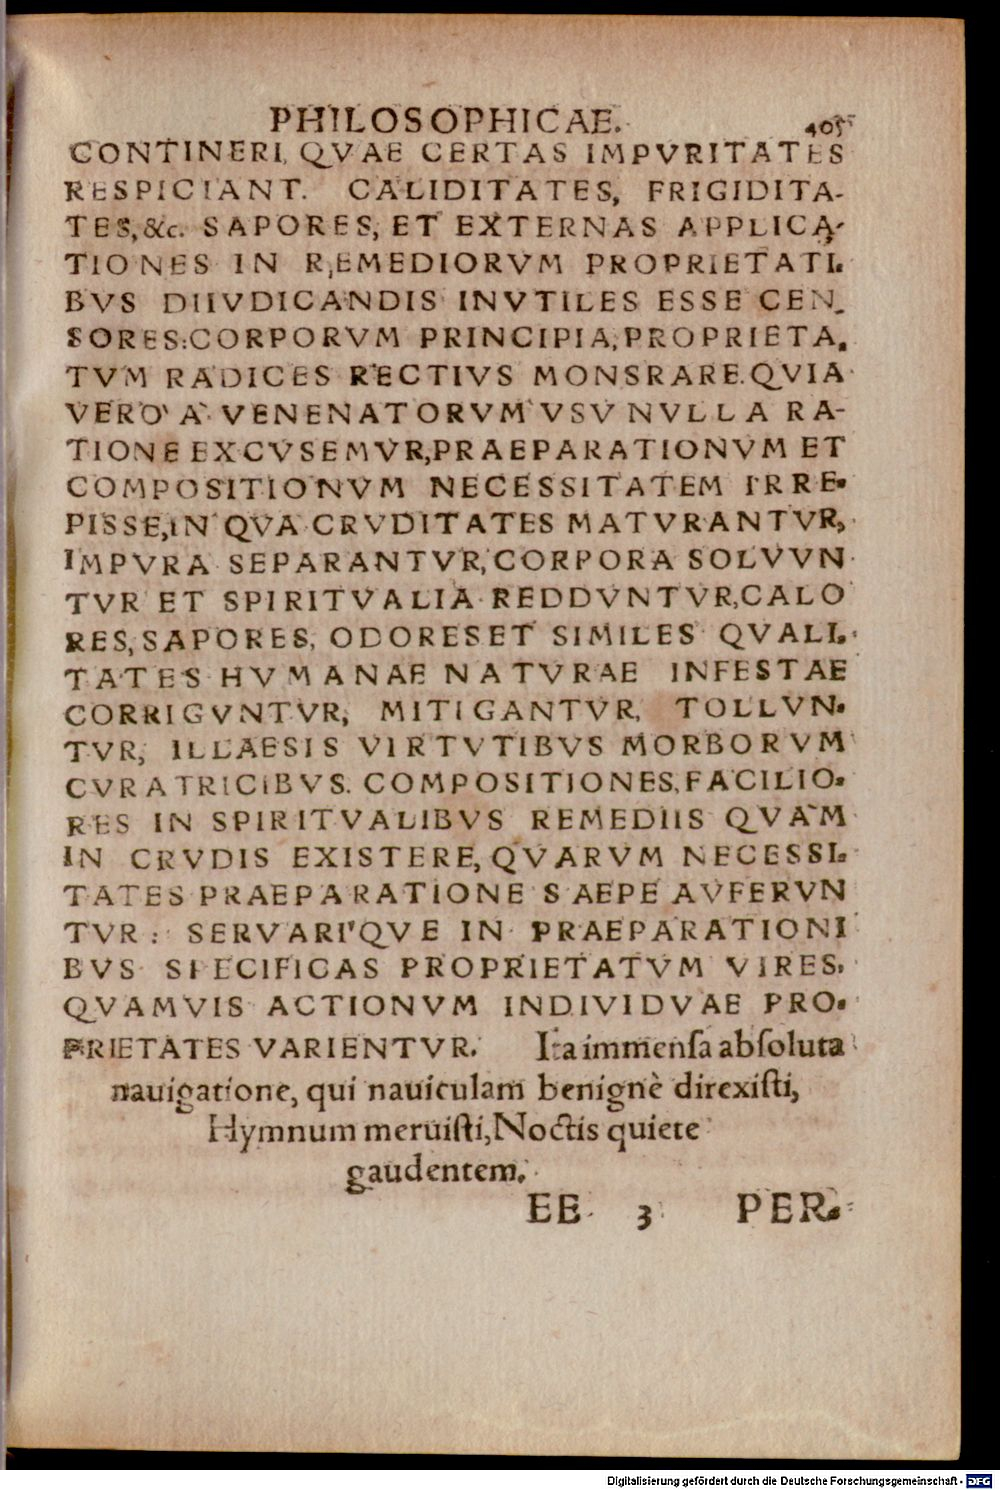 PHILOSOPHICAE. 405
CONTINERI, QVAE CERTAS IMPVRITATES
RESPICIANT. CALIDITATES, FRIGIDITA-
TES, &c. SAPORES, ET EXTERNAS APPLICA-
TIONES IN REMEDIORVM PROPRIETATI-
BVS DIIVDICANDIS INVTILES ESSE CEN-
SORES: CORPORVM PRINCIPIA, PROPRIETA-
TVM RADICES RECTIVS MONSRARE. QVIA
VERO' A' VENENATORVM VSV NVLLA RA-
TIONE EXCVSEMVR, PRAEPARATIONVM ET
COMPOSITIONVM NECESSITATEM IRRE-
PISSE, IN QVA CRVDITATES MATVRANTVR,
IMPVRA SEPARANTVR, CORPORA SOLVVN
TVR ET SPIRITVALIA REDDVNTVR, CALO
RES, SAPORES, ODORES ET SIMILES QVALI-
TATES HVMANAE NATVRAE INFESTAE
CORRIGVNTVR, MITIGANTVR, TOLLVN-
TVR, ILLAESIS VIRTVTIBVS MORBORVM
CVRATRICIBVS. COMPOSITIONES, FACILIO-
RES IN SPIRITVALIBVS REMEDIIS QVA'M
IN CRVDIS EXISTERE, QVARVM NECESSI-
TATES PRAEPARATIONE SAEPE AVFERVN
TVR: SERVARI'QVE IN PRAEPARATIONI
BVS SPECIFICAS PROPRIETATVM VIRES,
QVAMVIS ACTIONVM INDIVIDVAE PRO-
PRIETATES VARIENTVR. Ita immensa absoluta
nauigatione, qui nauiculam benignè direxisti,
Hymnum meruisti, Noctis quiete
gaudentem.
EE 3 PER-
Digitalisierung gefördert durch die Deutsche Forschungsgemeinschaft - DFG